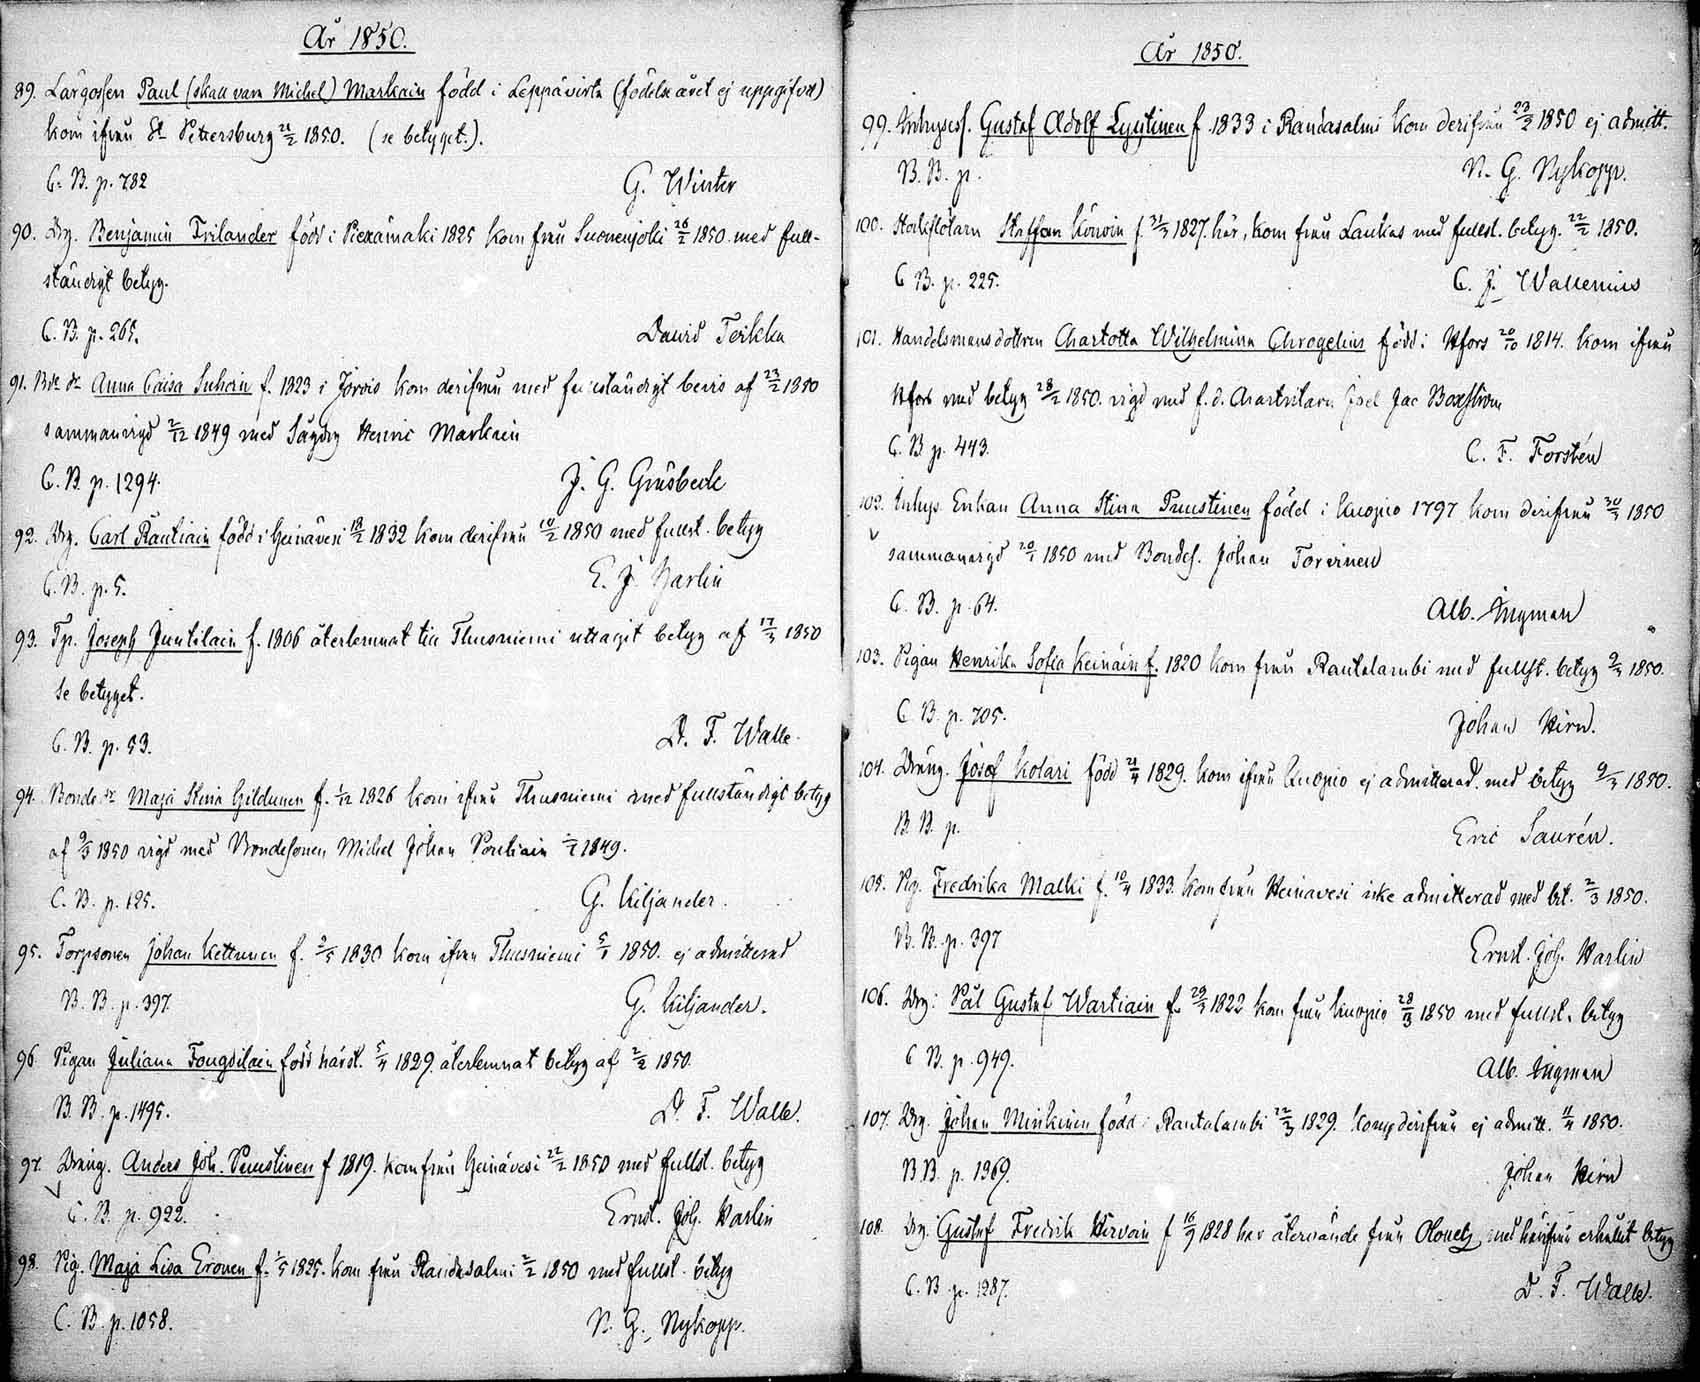 År 1850.
89. Lärgossen Paul (skall vara Michel) Markain född i Leppävirta (födelse året ej uppgifvet)
kom ifrån St Petersburg 21/2 1850. (se betyget.).
C. B. p. 782
G. Winter
90. Drg. Benjamin Frilander född i Piexämäki 1825 kom från Suonenjoki 26/2 1850 med full-
ständigt betyg.
C. B. p. 265.
David Teikka
91. Anna Caisa Suhoin f. 1823 i Jorois kom derifrån med fullständigt bevis af 23/2 1850
sammanvigd 2/12 1849 med Sågdrg Henric Markain
C. B. p. 1294.
J. G. Grasbeck
92. Drg. Carl Rautiain född i Heinävesi 18/2 1832 kom derifrån 10/2 1850 med fullst. betyg
C. B. p. 5.
E. J. Harlin
93. Tp. Joseph Juntilain f. 1806 återlemnat till Thusniemi uttagit betyg af 17/3 1850
se betyget.
C. B. p. 53.
D. F. Walle.
94. Bonde dr Maja Stina Gildunen f. 1/12 1826 kom ifrån Thusniemi med fullständigt betyg
af 9/3 1850 vigd med Bondesonen Michel Johan 1849.
C. B. p. 125.
G. Kiljander.
95. Torpsonen Johan Kettunen f. 2/5 1830 kom ifrån Thusniemi 1850. ej admitterad
B. B. p. 397
G. Kiljander.
96. Pigan Juliana Tougdilain född härst. 5/4 1829. återlemnat betyg af 2/2 1850.
B. B. p. 1495.
D. F. Walle.
97. Dräng. Anders Joh. Puustinen f 1819. kom från Heinävesi 22/2 1850 med fullst. betyg
C. B. p. 922.
Ernst. Joh. Harlin
98. Pig. Maja Lisa Eronen f. 1/5 1825. kom från Randasalmi 2/2 1850 med fullst. betyg
C. B. p. 1058.
N. G. Nykopp.
År 1850.
99. Inhysess. Gustaf Adolf Lyytinen f. 1833 i Randasalmi kom derifrån 23/2 1850 ej admitt.
B. B. p.
N. G. Nykopp.
100. Staffan Könöin f. 1827. här, kom från Laukas med fullst. betyg. 22/2 1850.
C B. p. 225.
C. J. Wallenius
101. Handelsmansdottren Charlotta Wilhelmina Chrogelius född i Hfors 20/10 1814. kom ifrån
Hfors med betyg 28/2 1850. vigd med f. d. Jac Boxström
C. B p. 443.
C. F. Forstén
102. Inhys Enkan Anna Stina Puustinen född i Kuopio 1797 kom derifrån 30/3 1850
sammanvigd 20/1 1850 med Bondes. Johan Torvinen
C. B. p. 64.
Alb. Ingman
103. Pigan Henrika Sofia Keinäin f. 1820 kom från Rautalambi med fullst. betyg 9/3 1850.
C B. p. 705.
Johan Hirn.
104. Dräng. Josef Kolari född 21/4 1829. kom ifrån Kuopio ej admitterad. med betyg 9/3 1850.
B. B. p.
Eric Saurén.
105. Pig. Fredrika Malki f. 10/4 1833. kom från Heinävesi icke admitterad med bet. 2/3 1850.
B. B. p. 397
Ernst. Joh. Harlin
106. Drg: Pål Gustaf Wartiain f. 29/3 1822 kom från Kuopio 28/3 1850 med fullst. betyg
C B. p. 949.
Alb. Ingman
107. Drg. Johan Minkinen född i Rautalambi 22/3 1829. komp derifrån ej admitt. 11/4 1850.
B B. p. 1369.
Johan Hirn
108. Drg. Gustaf Fredrik Hirvoin f 16/9 1828 har återvände från Olonetz, med härifrån erhållit betyg
C. B p. 1287.
D. F. Walle.